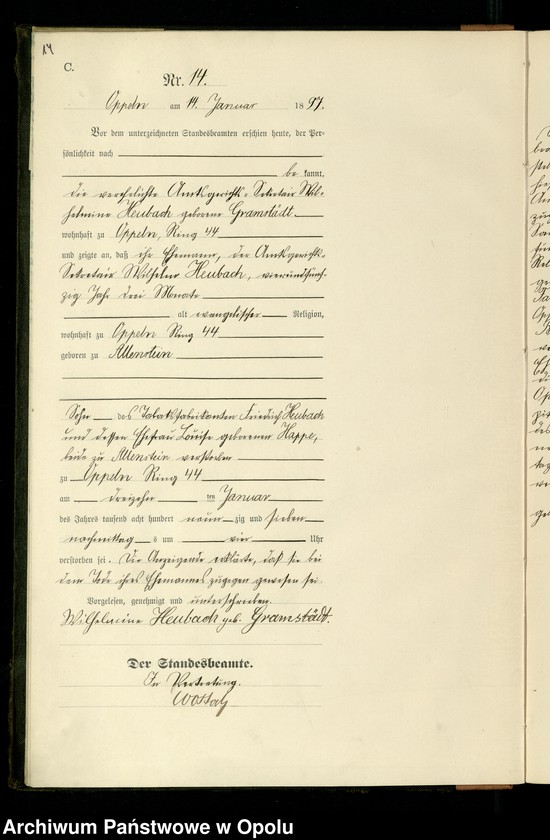 14
C.
Nr. 14.
Oppeln am 14. Januar 1897.
Vor dem unterzeichneten Standesbeamten erschien heute, der Per-
sönlichkeit nach
be kannt,
die verehelichte Amtsgerichts-Sekretär Wil-
helmine Heubach geborene Gramstädt
wohnhaft zu Oppeln, Ring 44
und zeigte an, daß ihr Ehemann, der Amtsgerichts-
Sekretär Wilhelm Heubach, vierundfünf-
zig Jahr drei Monate
alt evangelischer Religion,
wohnhaft zu Oppeln Ring 44
geboren zu Allenstein
Sohn des Tabaksfabrikanten Friedrich Heubach
und dessen Ehefrau Louise geborenen Happe,
beide zu Allenstein verstorben
zu Oppeln Ring 44
am dreizehn ten Januar
des Jahres tausend acht hundert neun zig und sieben
nachmittag s um vier Uhr
verstorben sei. Die Anzeigende erklärte, daß sie bei
dem Tode ihres Ehemannes zugegen gewesen sei.
Vorgelesen, genehmigt und unterschrieben.
Wilhelmine Heubach geb. Gramstädt.
Der Standesbeamte.
In Vertretung.
Archiwum Państwowe w Opolu